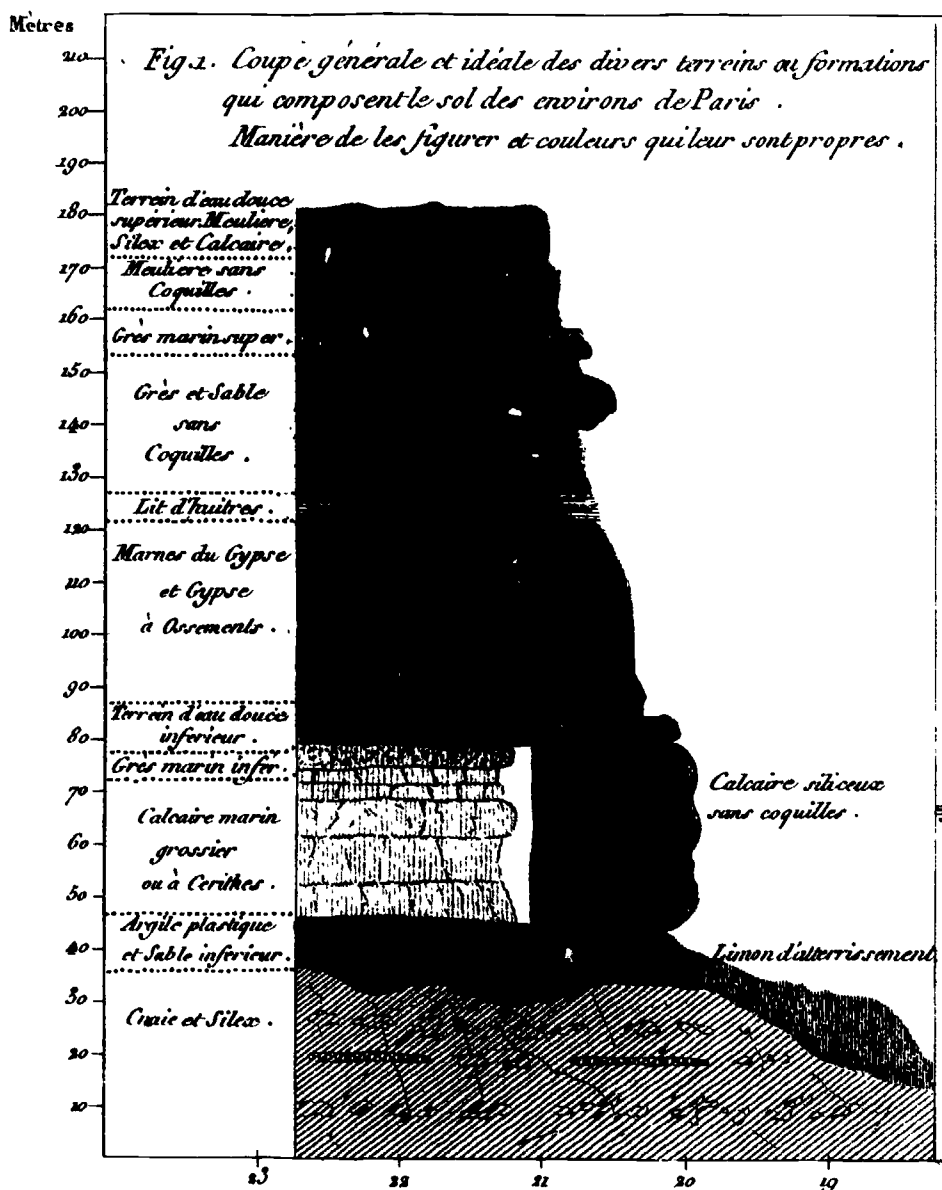 Mètres
Fig.1. Coupe générale et idéale des divers terreins ou formations
qui composent le sol des environs de Paris.
Manière de les figurer et couleurs qui leur sont propres.
210
200
190
180
170
160
150
140
130
120
110
100
90
80
70
60
50
40
30
20
10
Terrein d'eau douce
supérieur. Meuliere,
Silex et Calcaire.
Meuliere sans
Coquilles.
Grès marin super.
Grès et Sable
sans
Coquilles.
Lit d'huitres.
Marnes du Gypse
et Gypse
à Ossements.
Terrein d'eau douce
inferieur.
Grès marin infér.
Calcaire marin
grossier
ou à Cerithes.
Argile plastique
et Sable inférieur.
Craie et Silex.
Calcaire siliceux
sans coquilles.
Limon d'atterrissement
23 22 21 20 19